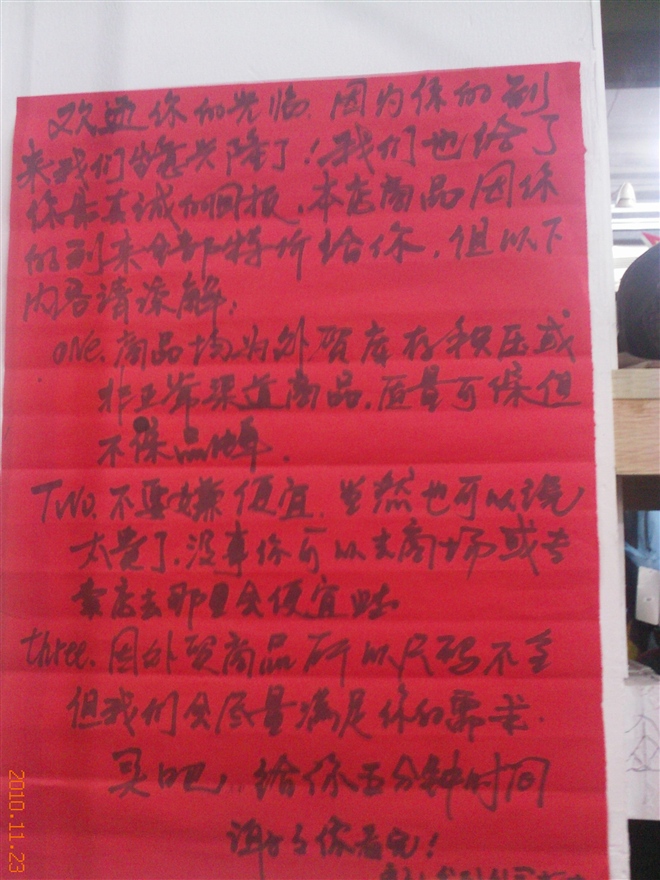 欢迎你的光临.因为你的到
来我们生意兴隆了!我们也给了
你最真诚的回报.本店商品因你
的到来全部特价给你.但以下
内容请谅解:
one.商品均为外贸库存积压或
非正常渠道商品.质量可保但
不保品牌.
Two.不要嫌便宜.当然也可以说
太贵了.没事你可以去商场或专
卖店去那里会便宜些
three.因外贸商品所以尺码不全
但我们会尽量满足你的需求.
买吧,给你五分钟时间
谢谢你看完!
2010.11.23